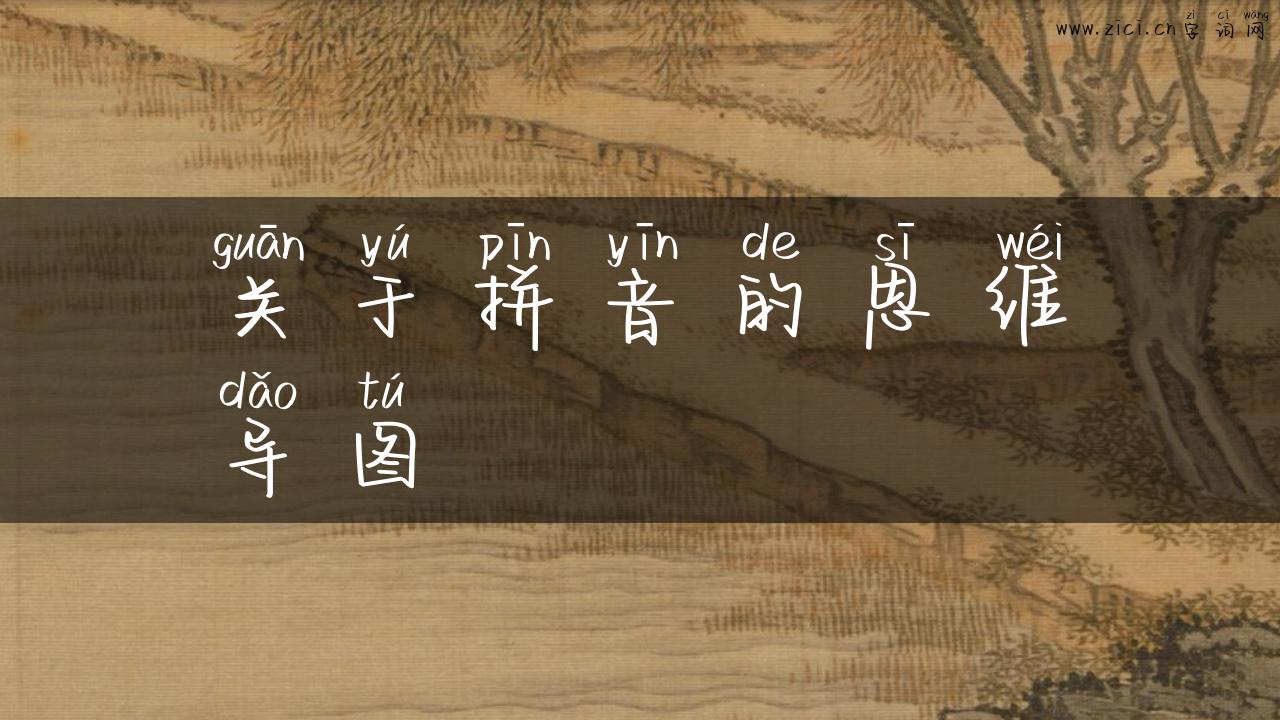 zì cí wǎng
www.zici.cn字词网
guān yú pīn yīn de sī wéi
关于拼音的思维
dǎo tú
导图